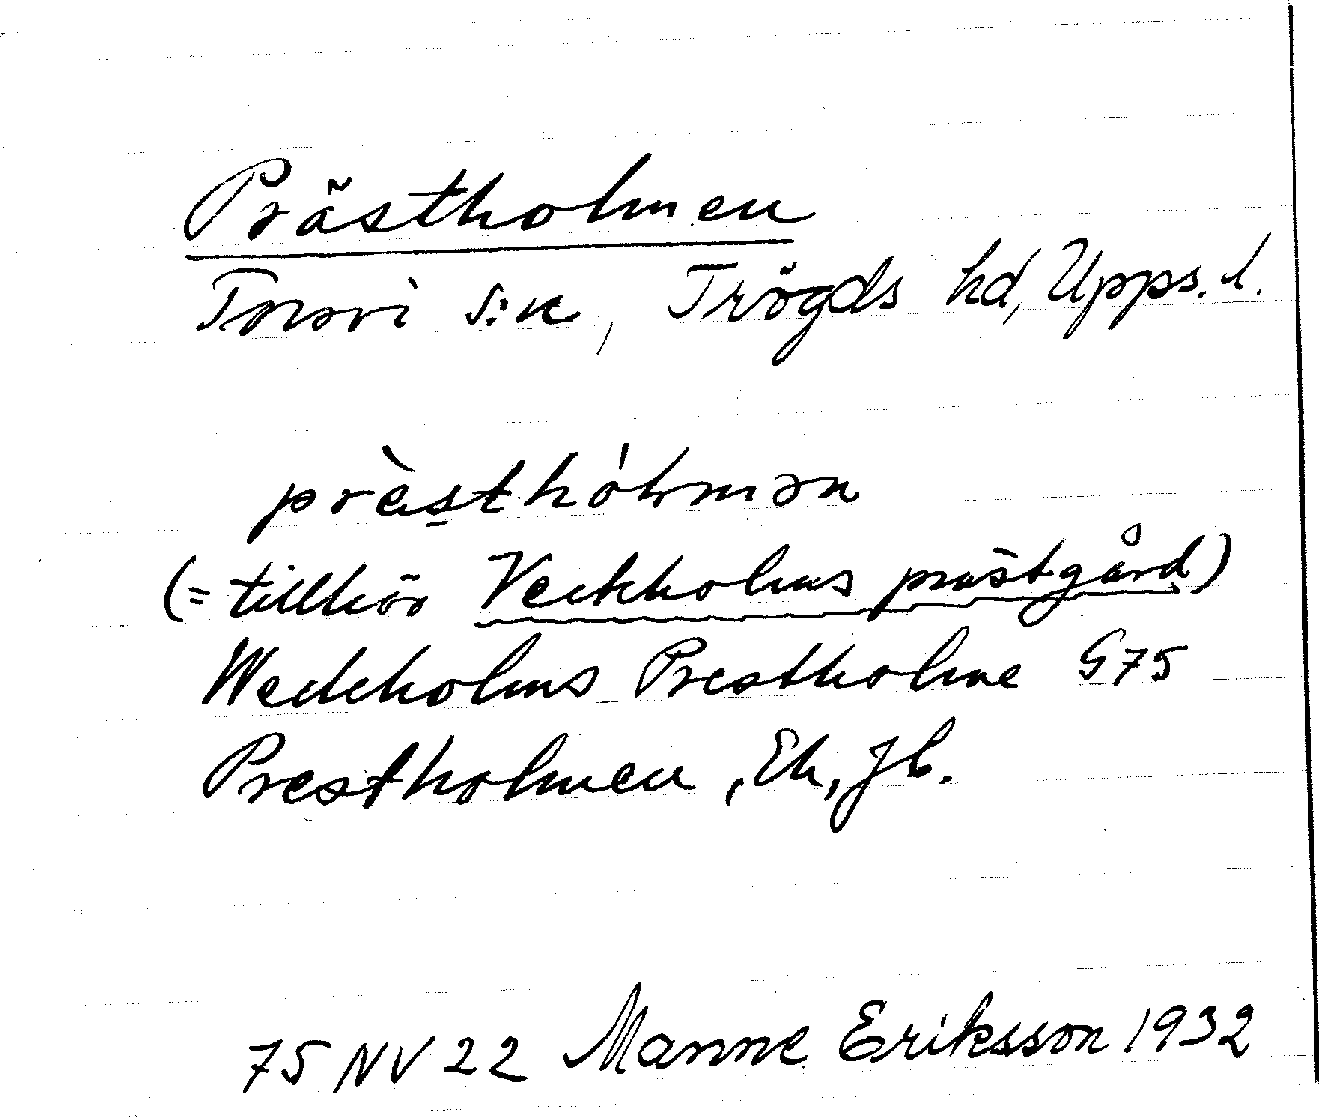 Prästholmen
Torsvi s:n, Trögds hd, Upps. l.
prèsthólmən
(= tillhör Veckholms prästgård)
Weckholms Prestholme G75
Prestholmen, Ek, Jb.
75 NV 22 Manne Eriksson 1932